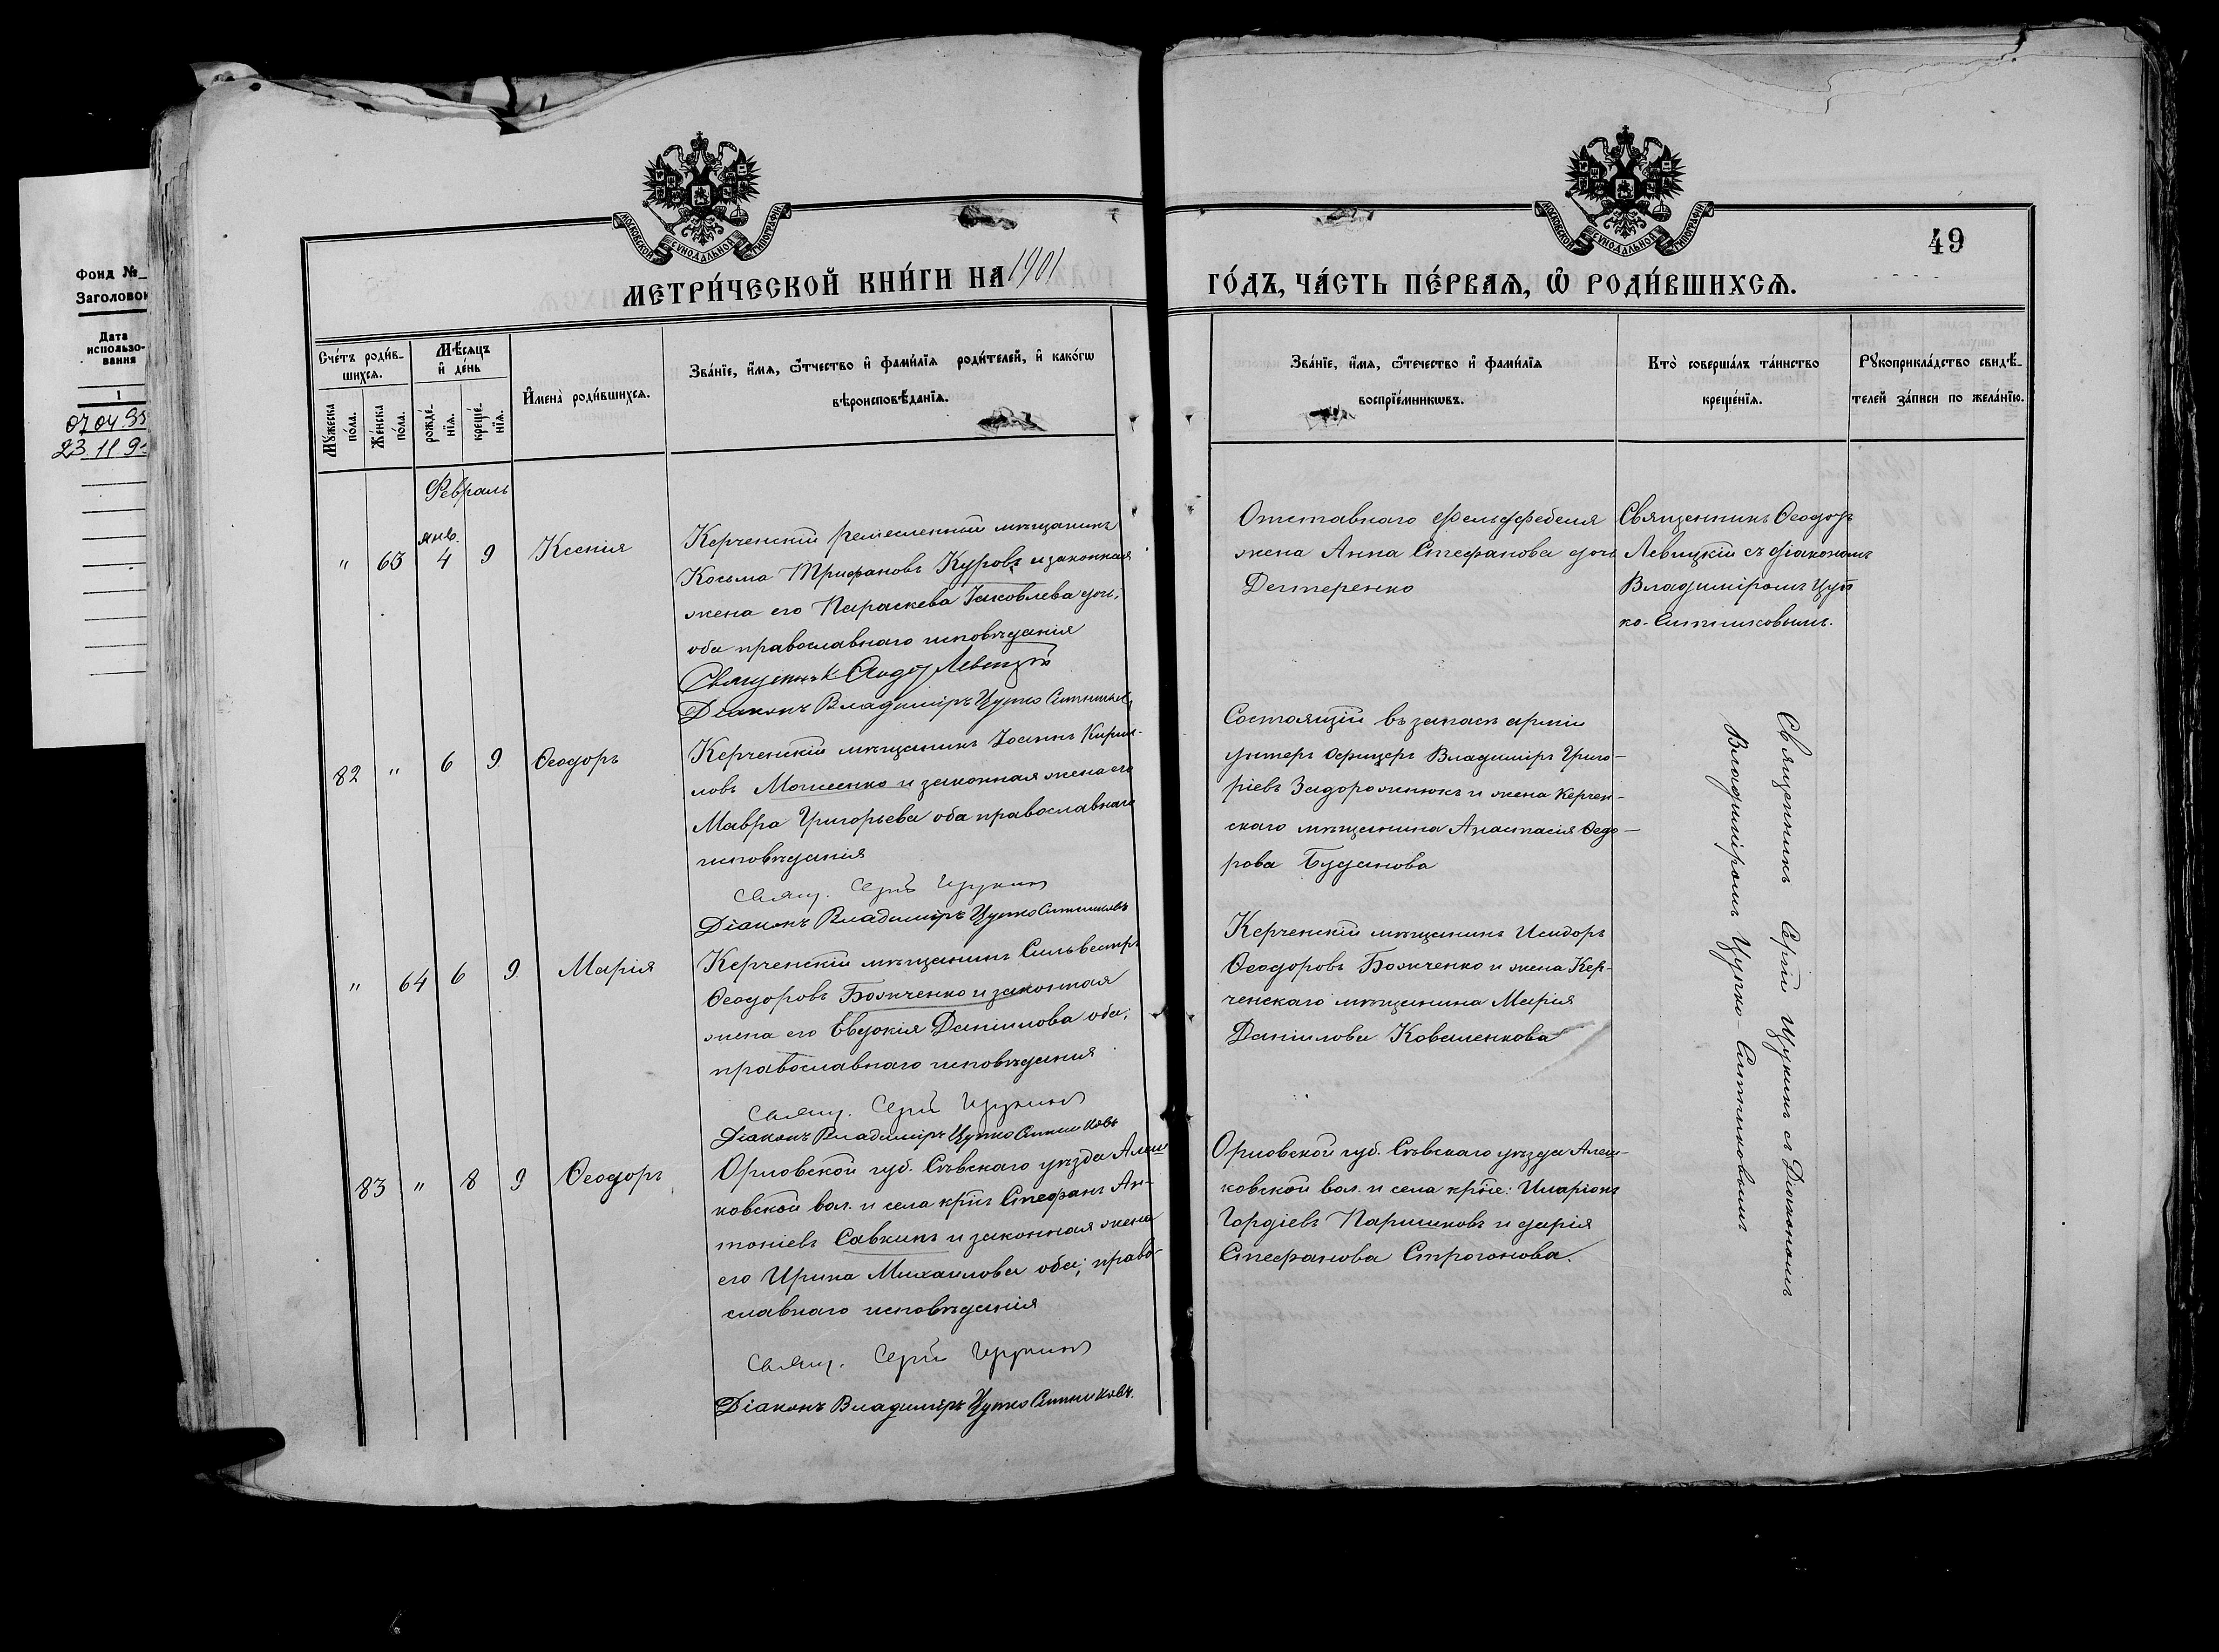 49
МЕТРИ́ЧЕСКОЙ КНИ́ГИ НА 1901
ГО́ДЪ, ЧА́СТЬ ПЕ́РВАѦ, Ѡ҆ РОДИ́ВШИХСѦ.
МОСКОВСКОЙ СѴНОДАЛЬНОЙ ТИПОГРАФІИ
МОСКОВСКОЙ СѴНОДАЛЬНОЙ ТИПОГРАФІИ
Фонд №
Дата
использо-
вания
1
07 04
23. 11. 9
Сче́тъ роди́в-
шихсѧ.
Мꙋ́жеска
по́ла.
Же́нска
по́ла.
Мѣ́сѧцъ
и҆ де́нь
рожде́-
нїѧ.
креще́-
нїѧ.
И҆мена̀ роди́вшихсѧ.
Зва́нїе, и҆́мѧ, ѻ҆́тчество и҆ фами́лїѧ роди́телей, и҆ како́гѡ
вѣроисповѣ́данїѧ.
Зва́нїе, и҆́мѧ, ѻ҆́течество и҆ фами́лїѧ
воспрїе́мникѡвъ.
Кто̀ соверша́лъ та́инство
креще́нїѧ.
Рꙋкоприкла́дство свидѣ́-
телей за́писи по жела́нїю.
Февраль
янв.
" 63 4 9 Ксенія
Керченскій ремесленный мѣщанинъ
Косьма Трифановъ Куровъ и законная
жена его Параскева Іаковлева дочь,
оба православнаго исповѣданія
Священникъ Ѳеодоръ Левицкій
Діаконъ Владиміръ Цупко Ситниковъ
Отставного фельдфебеля
жена Анна Стефанова дочь
Дегтеренко
Священникъ Ѳеодоръ
Левицкій съ діакономъ
Владиміромъ Цуп
ко-Ситниковымъ.
82 " 6 9 Ѳеодоръ
Керченскій мѣщанинъ Іоаннъ Кирил-
ловъ Мошенко и законная жена его
Мавра Григорьева оба православнаго
исповѣданія
Свящ. Сергій Щукинъ
Діаконъ Владиміръ Цупко Ситниковъ
Состоящій въ запасѣ арміи
унтеръ офицеръ Владиміръ Григо-
ріевъ Задорожнюкъ и жена Керчен-
скаго мѣщанина Анастасія Ѳедо-
рова Буданова
Священникъ Сергій Щукинъ съ Діакономъ
Владиміромъ Цупко-Ситниковымъ
" 64 6 9 Марія
Керченскій мѣщанинъ Сильвестръ
Ѳеодоровъ Божченко и законная
жена его Евдокія Даніилова оба,
православнаго исповѣданія
Свящ. Сергій Щукинъ
Діаконъ Владиміръ Цупко Ситниковъ
Керченскій мѣщанинъ Исидоръ
Ѳеодоровъ Божченко и жена Кер-
ченскаго мѣщанина Марія
Даніилова Коваленкова
83 " 8 9 Ѳеодоръ
Орловской губ. Сѣвскаго уѣзда Алеш
ковской вол. и села крнъ Стефанъ Ан-
тоніевъ Савкинъ и законная жена
его Ирина Михаилова оба, право-
славнаго исповѣданія
Свящ. Сергій Щукинъ
Діаконъ Владиміръ Цупко Ситниковъ.
Орловской губ. Сѣвскаго уѣзда Алеш-
ковской вол. и села крне: Иларіонъ
Гордіевъ Паршиковъ и дарія
Стефанова Строгонова.